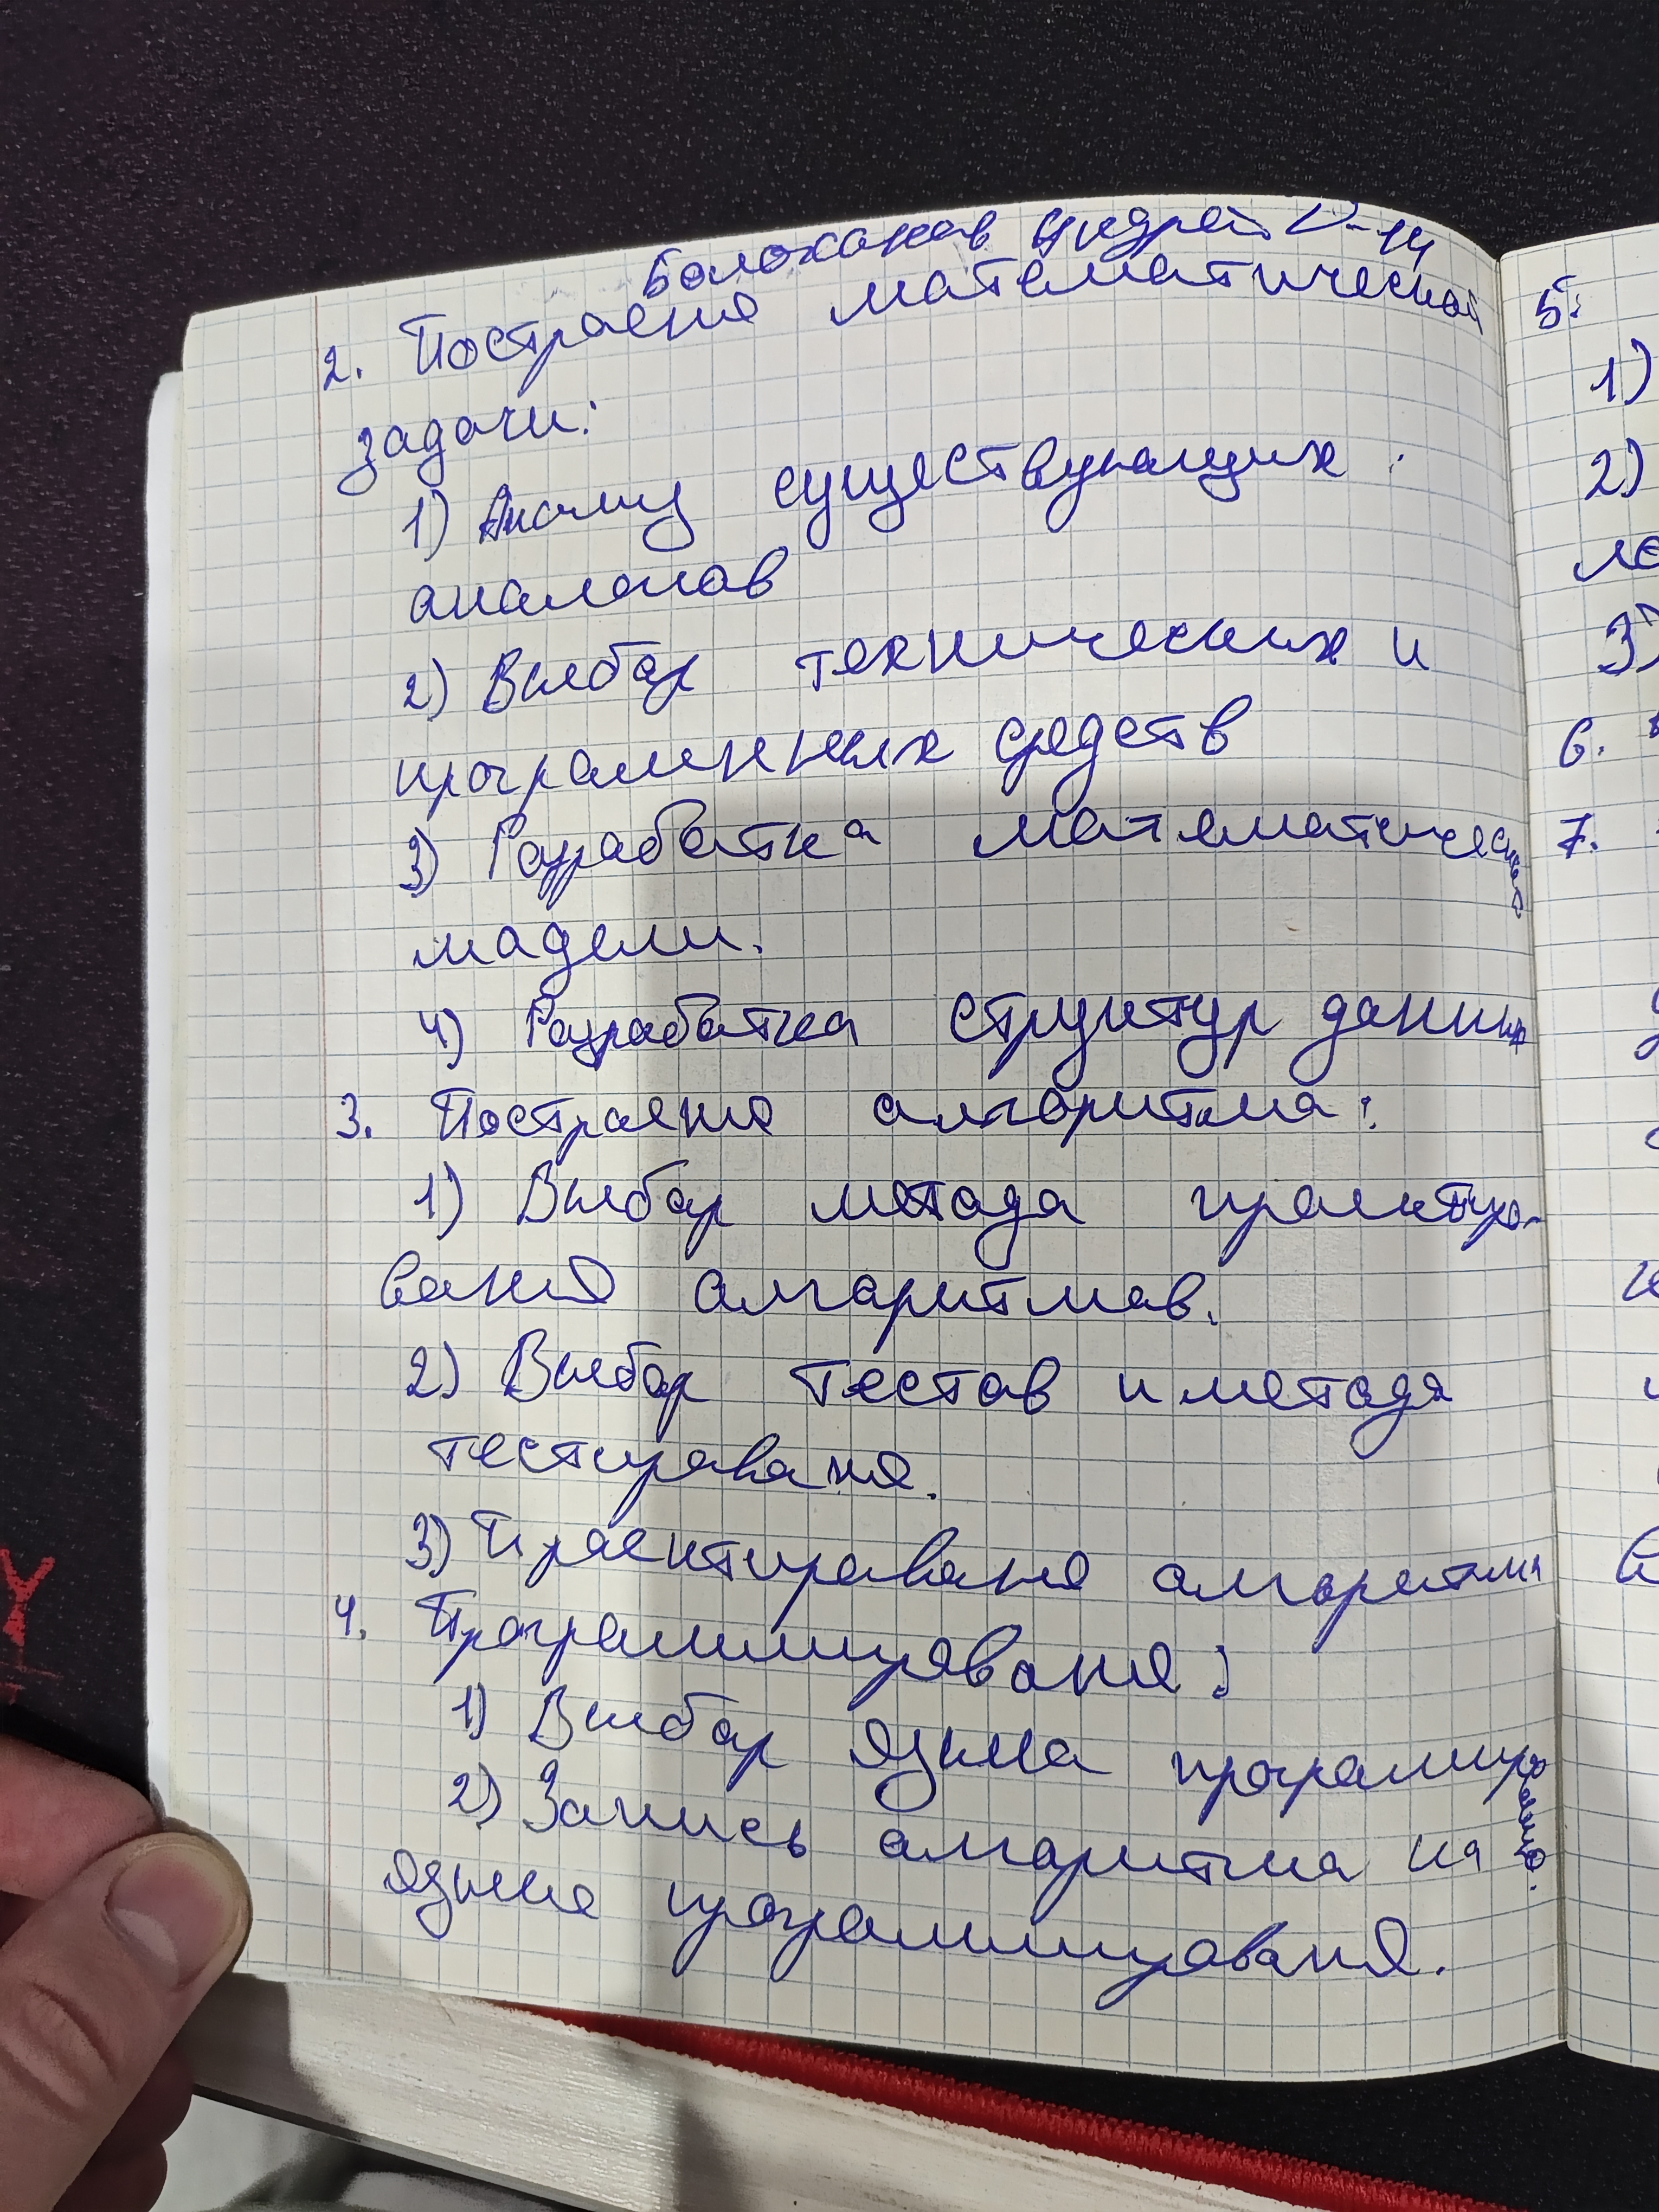 Болоханов Андрей D-14
2. Построение математической
задачи:
1) Анализ существующих
аналогов
2) Выбор технических и
програмнных средств
3) Разработка математической
модели.
4) Разработка структур данных
3. Построение алгоритма:
1) Выбор метода проектиро-
вания алгоритмов.
2) Выбор тестов и метода
тестирования.
3) Проектирование алгоритма
4. Программирование:
1) Выбор языка программирования.
2) Запись алгоритма на
языке программирования.
5.
1)
2)
3)
6.
7.